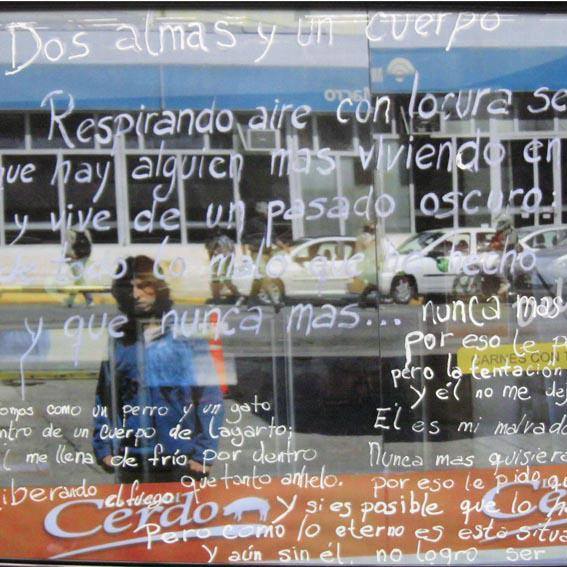 Dos almas y un cuerpo
Macro
Respirando aire con locura se
que hay alguien mas viviendo en
y vive de un pasado oscuro;
de todo lo malo que he hecho
y que nunca mas... nunca mas
por eso le p
CARNES CON
pero la tentación
y él no me dej
Somos como un perro y un gato
dentro de un cuerpo de lagarto;
me llena de frío por dentro
liberando el fuego que tanto anhelo.
El es mi malvado
Nunca mas quisiera
por eso le pido que
y si es posible que lo ha
Cerdo
Ce
Pero como lo eterno es esta situa
Y aún sin él, no logro ser